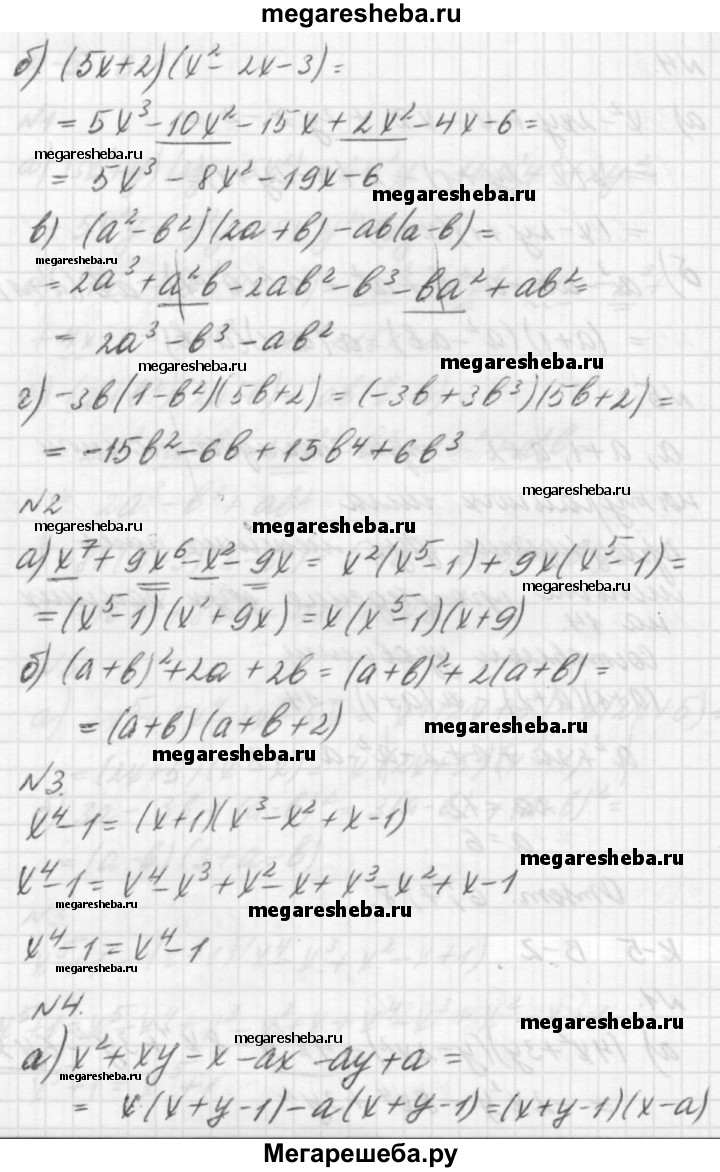 megaresheba.ru
б) (5x+2)(x²-2x-3)=
= 5x³-10x²-15x+2x²-4x-6=
megaresheba.ru
= 5x³-8x²-19x-6
megaresheba.ru
в) (a²-b²)(2a+b)-ab(a-b)=
megaresheba.ru
=2a³+a²b-2ab²-b³-ba²+ab²=
megaresheba.ru
= 2a³-b³-ab²
megaresheba.ru
megaresheba.ru
г) -3b(1-b²)(5b+2)=(-3b+3b³)(5b+2)=
= -15b²-6b+15b⁴+6b³
megaresheba.ru
№2
megaresheba.ru
megaresheba.ru
а) x⁷+9x⁶-x²-9x= x²(x⁵-1)+9x(x⁵-1)=
megaresheba.ru
=(x⁵-1)(x²+9x)=x(x⁵-1)(x+9)
б) (a+b)²+2a+2b=(a+b)²+2(a+b)=
=(a+b)(a+b+2)
megaresheba.ru
megaresheba.ru
№3.
x⁴-1=(x+1)(x³-x²+x-1)
megaresheba.ru
x⁴-1=x⁴-x³+x²-x+x³-x²+x-1
megaresheba.ru
megaresheba.ru
x⁴-1=x⁴-1
megaresheba.ru
№4.
megaresheba.ru
megaresheba.ru
а) x²+xy-x-ax-ay+a=
megaresheba.ru
= x(x+y-1)-a(x+y-1)=(x+y-1)(x-a)
Мегарешеба.ру